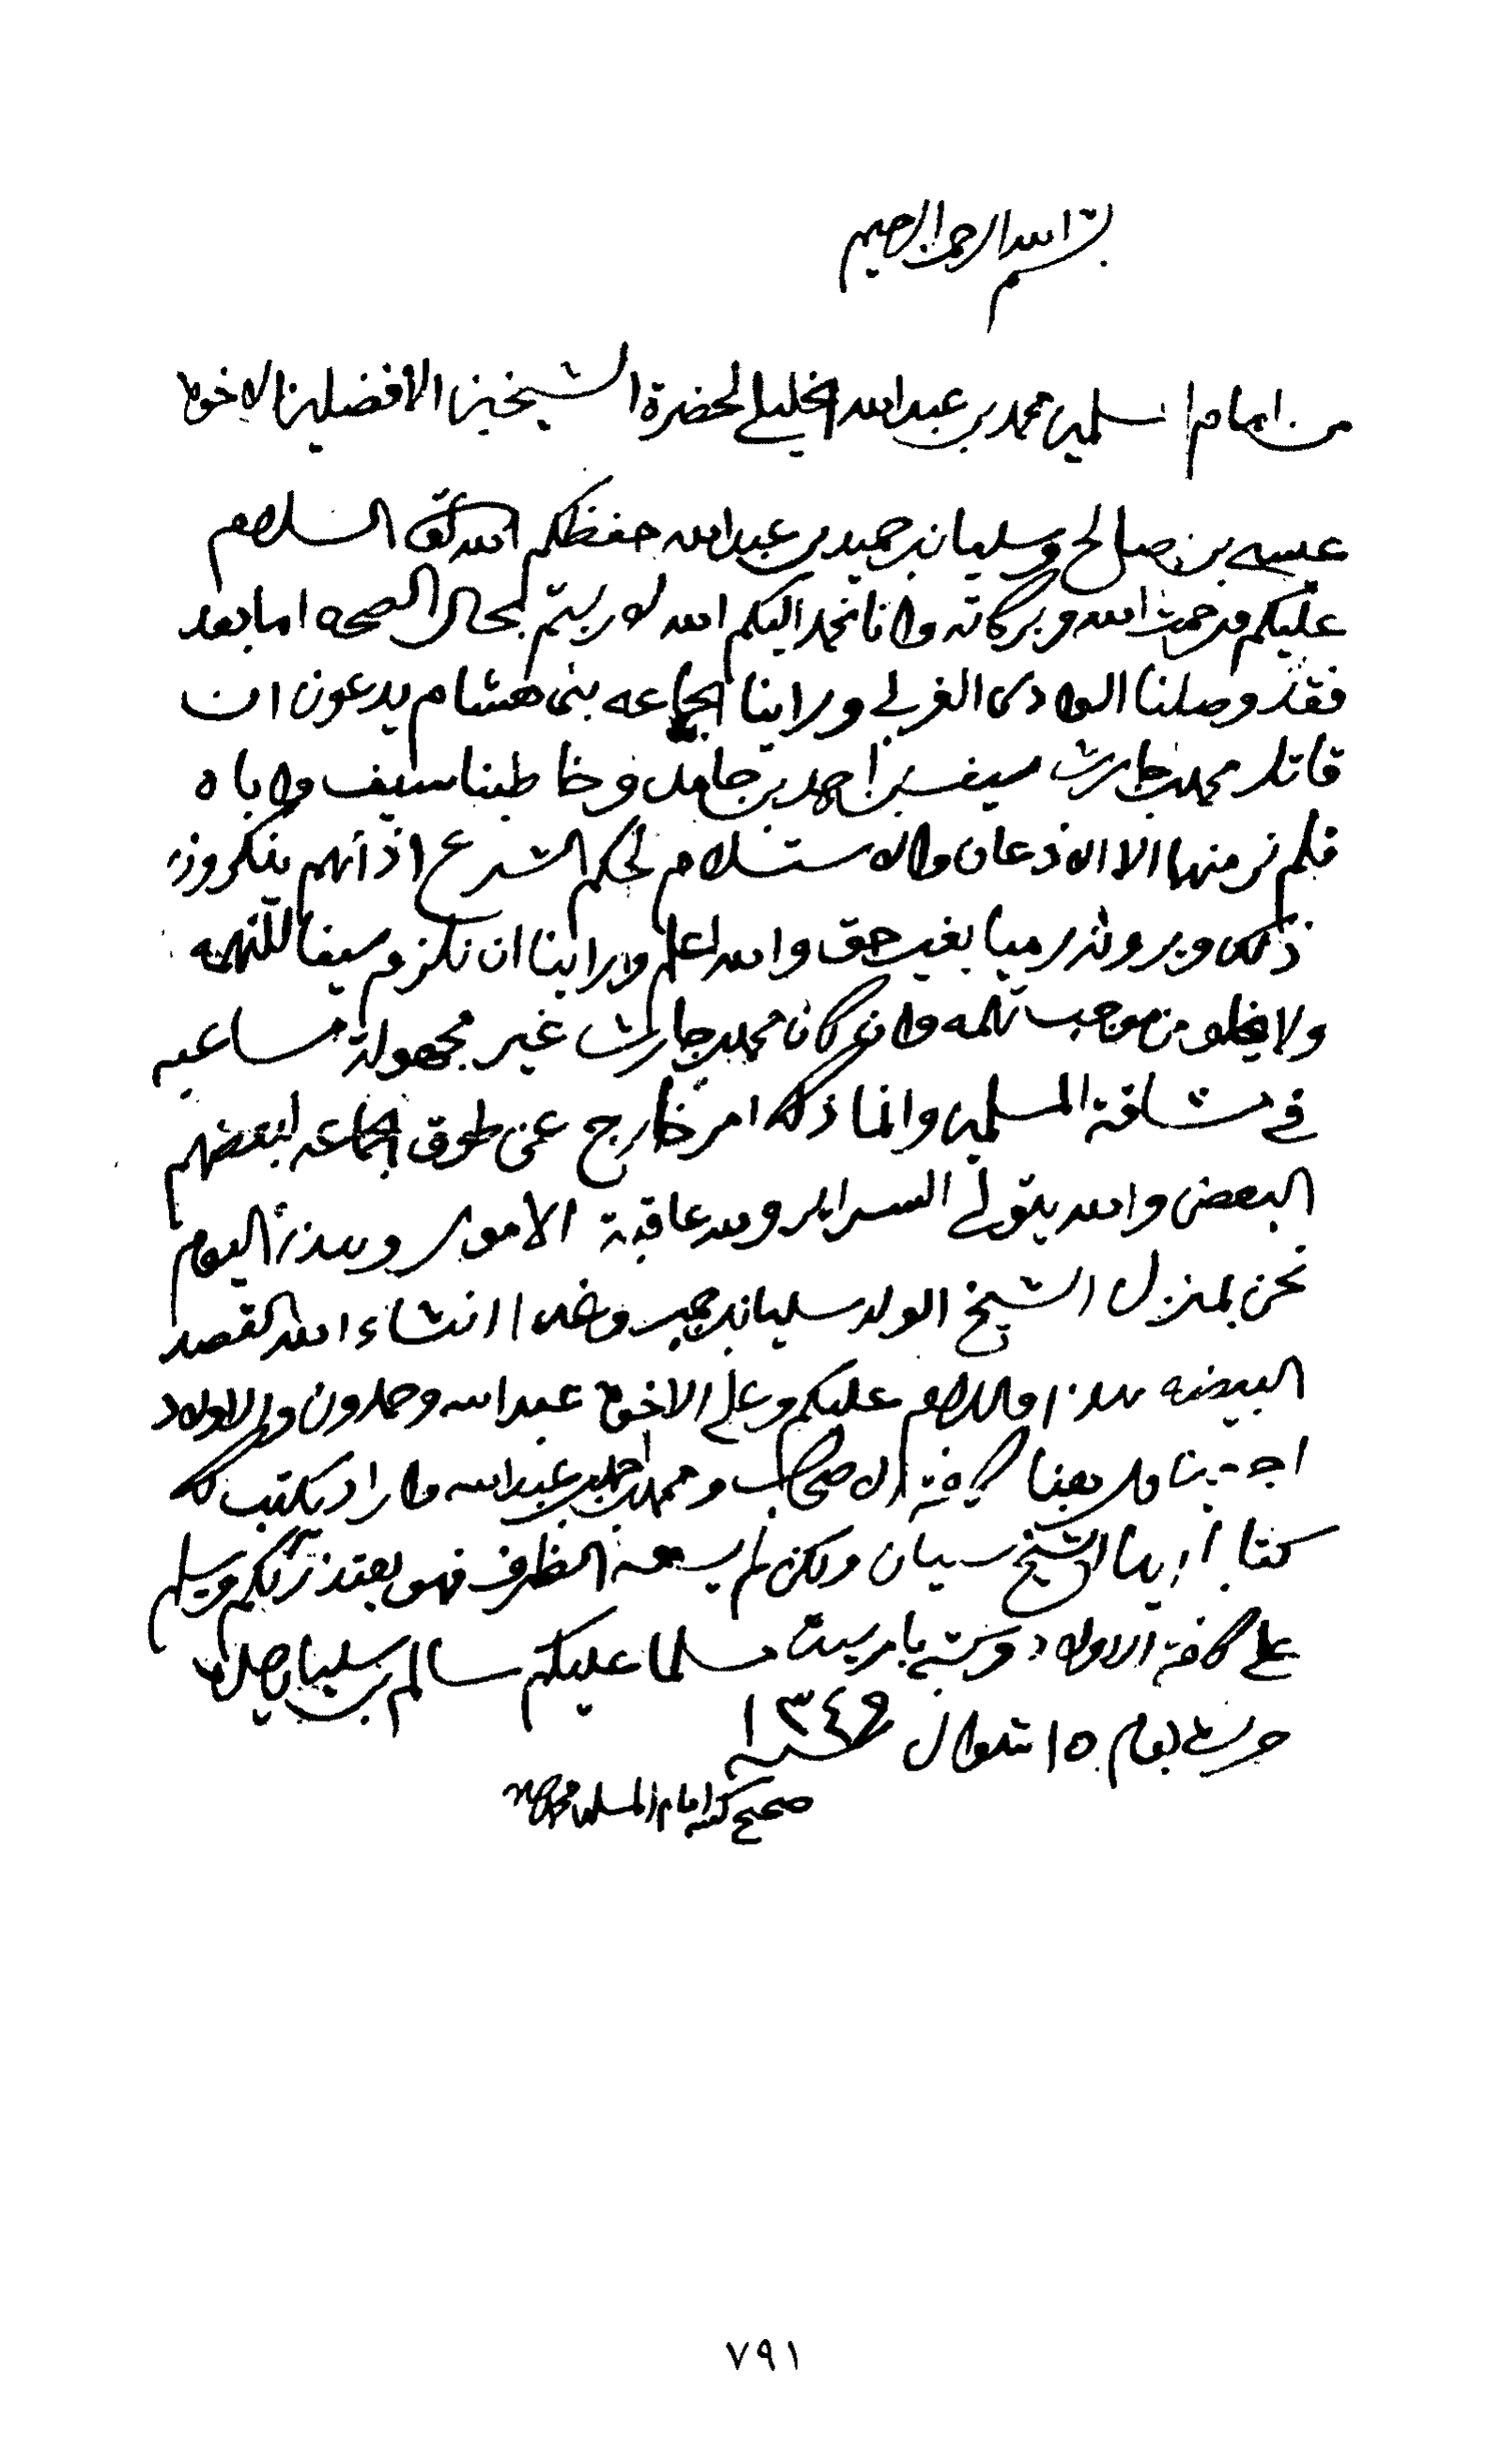 بسم الله الرحمن الرحيم
من امام المسلمين محمد بن عبدالله الخليلي لحضرة الشيخين الافضلين الاخوين
عيسى بن صالح وسليمان بن حمير بن عبدالله حفظكم الله تعالى السلام
عليكم ورحمت الله وبركاته وانا نحمد اليكم الله لا ريتم بحال الصحه اما بعد
فقد وصلنا الوادي الغربي ورأينا الجماعه بني هشام يدعون ان
قاتل محمد بن حارث سيف بن احمد بن حامد وخاطبنا سيف واباه
فلم نر منهما الا الاذعان والاستسلام لحكم الشرع اذ انهم ينكرون
ذلك ويرونه رميا بغير حق والله اعلم ورأينا ان نلزم سيفا للتهمه
ولا يخلو من موجب تهمه وان كان محمد بن حارث غير مجهولة مساعيه
في مشاقة المسلمين وانما ذلك امر خارج عن طوق الجماعه لبعضهم
البعض والله يتولى السراير ولله عاقبة الامور وهذا اليوم
نحن بمنزل الشيخ الولد سليمان بن حمير وغدا انشاء الله القصد
البيضه هذا والسلام عليكم وعلى الاخوين عبدالله وحمدون والاولاد
كافة الاصحاب ومحمد بن احمد بن عبدالله واراد يكتب لك
كتابا الشيخ ولكن لم يسعه الظرف فهو يعتذر لكم ويسلم
على كافة الاولاد مسلما عليكم سالم بن سليمان
حرر يوم ١٥ شوال سنة ١٣٤٩
صحيح كتبه امام المسلمين محمد
٧٩١